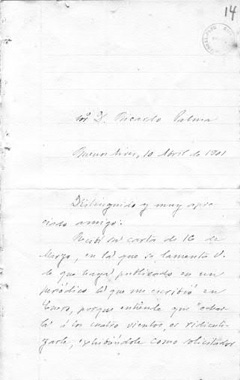 14
Sr. D. Ricardo Palma
Buenos Aires, 10 Abril de 1901
Distinguido y muy apre-
ciado amigo:
Recibí su carta de 16 de
Marzo, en la que se lamenta de
lo que haya publicado en un
periódico la que me escribió en
Enero, porque entiende que
á los cuatro vientos, es ridiculi-
zarle, exhibiéndole como solicitador